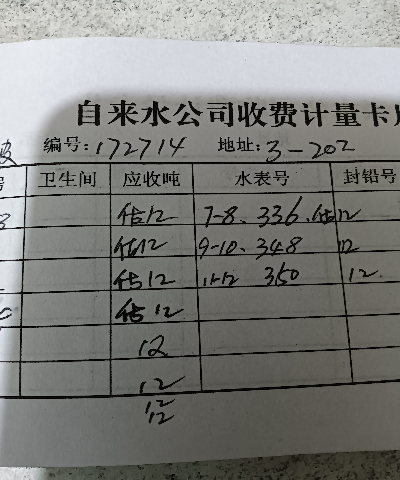 自来水公司收费计量卡
编号:172714 地址:3-202
卫生间 应收吨 水表号 封铅号
估12 7-8、336、估12
估12 9-10、348 12
估12 11-12 350 12、
估12
12
12
12
12